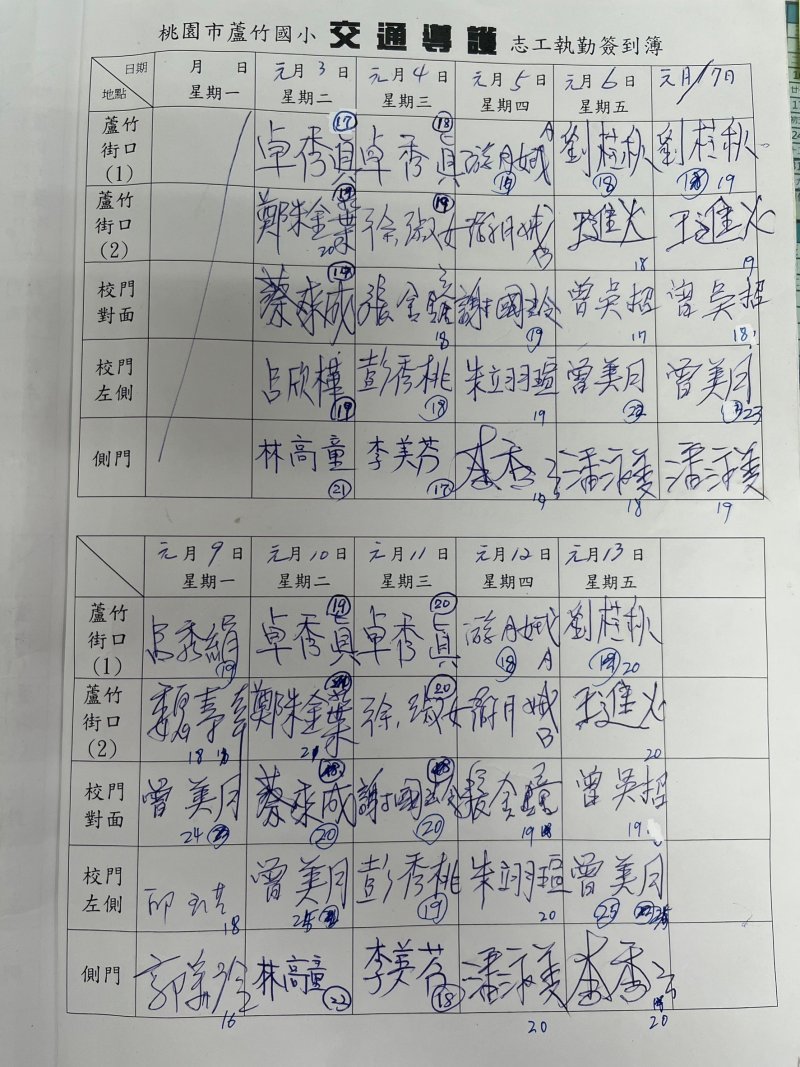 桃園市蘆竹國小 交通導護 志工執勤簽到簿
日期 月 日 元月3日 元月4日 元月5日 元月6日 元月/7日
地點 星期一 星期二 星期三 星期四 星期五
蘆竹街口(1) 卓秀真 ⑰ 卓秀真 ⑱ 游月娥 A 劉桂秋 ⑱ 劉桂秋 19
蘆竹街口(2) 鄭朱金葉 20 徐淑女 ⑲ 游月娥 B 王進火 18 王進火 19
校門對面 蔡來成 張金鐘 18 謝國玲 ⑲ 曾吳招 17 曾吳招 18
校門左側 呂欣樺 ⑲ 彭秀桃 ⑱ 朱翊瑄 19 曾美月 曾美月 23
側門 林高童 ㉑ 李美芬 ⑰ 李香 潘淑美 18 潘淑美 19
元月9日 元月10日 元月11日 元月12日 元月13日
星期一 星期二 星期三 星期四 星期五
蘆竹街口(1) 呂秀絹 ⑲ 卓秀真 ⑲ 卓秀真 ⑳ 游月娥 ⑱ A 劉桂秋 20
蘆竹街口(2) 18 鄭朱金葉 21 徐淑女 ⑳ 游月娥 B 王進火 20
校門對面 曾美月 24 蔡來成 ⑳ 謝國玲 ⑳ 張金鐘 19 曾吳招 19
校門左側 邱 18 曾美月 彭秀桃 ⑲ 朱翊瑄 20 曾美月 ㉕
側門 郭 16 林高童 ㉒ 李美芬 ⑱ 潘淑美 20 李香 20